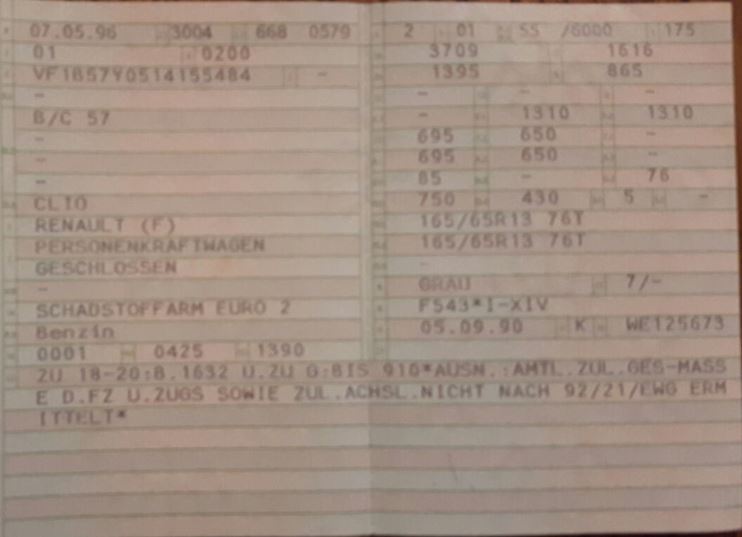 07.05.96 3004 668 0579
01 0200
VF1857Y0514155484 -
-
B/C 57
-
-
-
CLIO
RENAULT (F)
PERSONENKRAFTWAGEN
GESCHLOSSEN
-
SCHADSTOFFARM EURO 2
Benzin
0001 0425 1390
2 01 55 /6000 175
3709 1616
1395 865
- - -
- 1310 1310
695 650 -
695 650 -
85 - 76
750 430 5 -
165/65R13 76T
165/65R13 76T
-
GRAU 7/-
F543*I-XIV
05.09.90 K WE125673
ZU 18-20:B.1632 U.ZU G:BIS 910*AUSN.:AMTL.ZUL.GES-MASS
E D.FZ U.ZUGS SOWIE ZUL.ACHSL.NICHT NACH 92/21/EWG ERM
ITTELT*